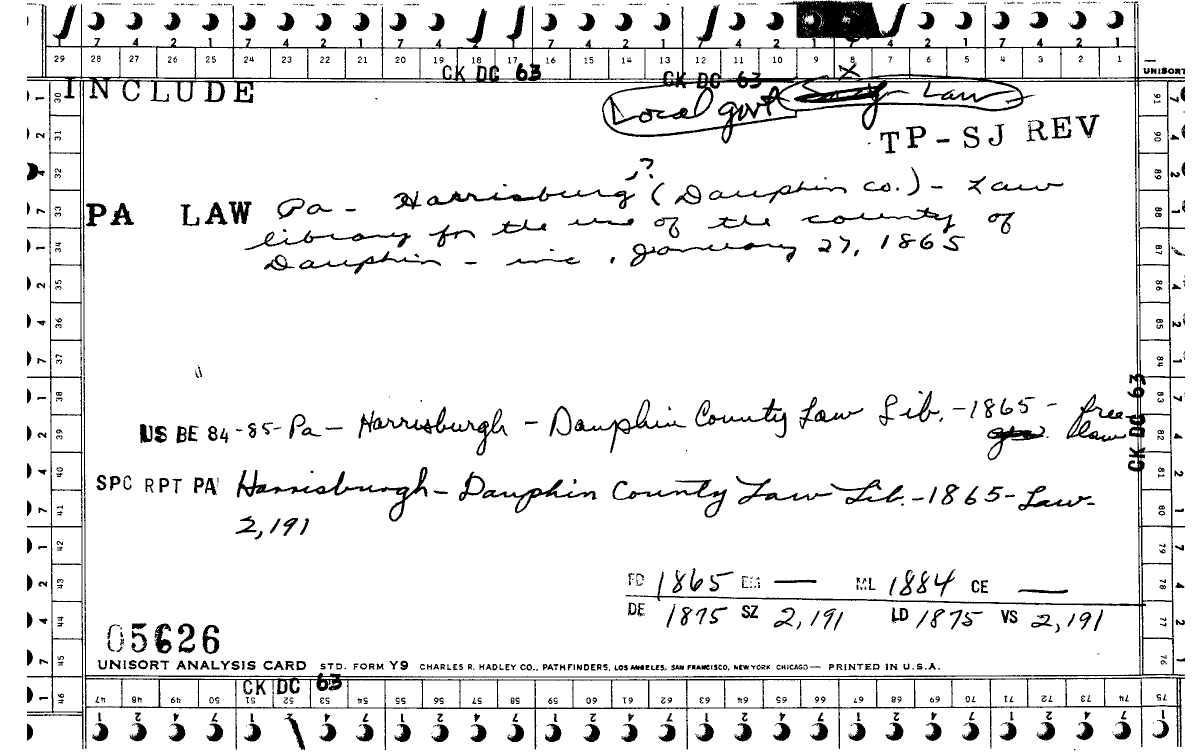 7 4 2 1 7 4 2 1 7 4 2 1 7 4 2 1 7 4 2 1 7 4 2 1 7 4 2 1
29 28 27 26 25 24 23 22 21 20 19 18 17 16 15 14 13 12 11 10 9 8 7 6 5 4 3 2 1
CK DC 63 CK DC 63 UNISORT
INCLUDE
Local govt Law
TP-SJ REV
PA LAW Pa - Harrisburg ? (Dauphin co.) - Law
library for the use of the county of
Dauphin - inc. January 27, 1865
US BE 84-85-Pa- Harrisburgh - Dauphin County Law Lib. -1865 - free
law
SPC RPT PA Harrisburgh- Dauphin County Law Lib. -1865- Law-
2,191
CK DC 63
FD 1865 EM — ML 1884 CE —
DE 1875 SZ 2,191 LD 1875 VS 2,191
05626
UNISORT ANALYSIS CARD STD. FORM Y9 CHARLES R. HADLEY CO., PATHFINDERS, LOS ANGELES, SAN FRANCISCO, NEW YORK CHICAGO— PRINTED IN U.S.A.
CK DC 63
47 48 49 50 51 52 53 54 55 56 57 58 59 60 61 62 63 64 65 66 67 68 69 70 71 72 73 74 75
1 2 4 7 1 2 4 7 1 2 4 7 1 2 4 7 1 2 4 7 1 2 4 7 1 2 4 7